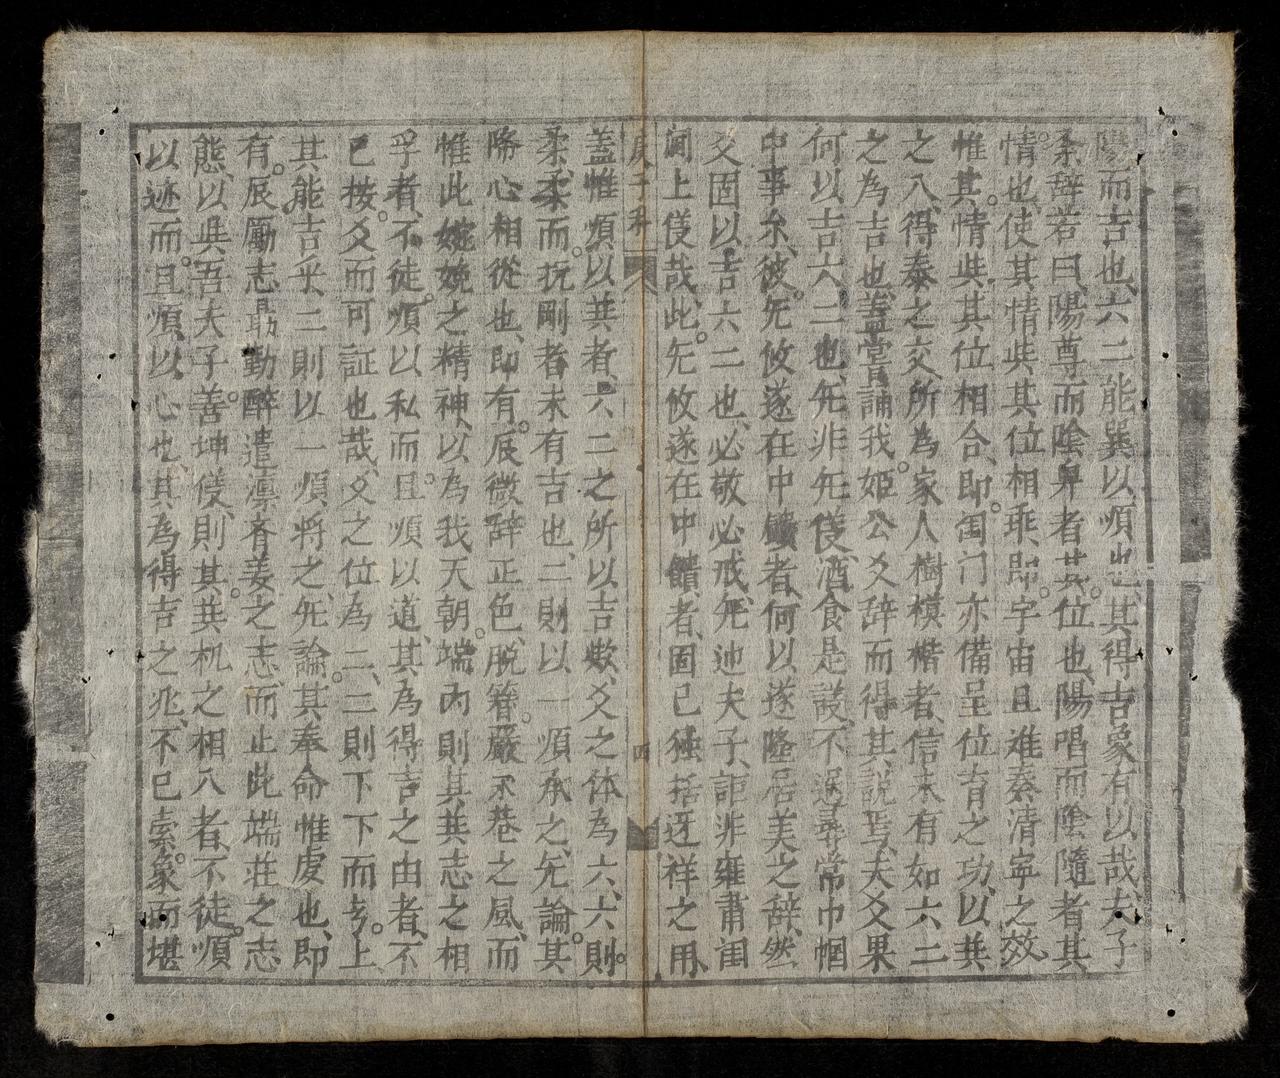 陽而吉也、六二能巽以順也、其得吉象有以哉、夫子
条辞若曰、陽尊而陰卑者其位也、陽唱而陰隨者其
情也、使其情与其位相乖、即宇宙且难奏清寧之效
惟其情与其位相合、即闺门亦備呈位育之功、以其
之入、得泰之交、所為家人樹模楷者、信未有如六二
之為吉也、蓋嘗誦我姬公爻辞而得其説焉、夫爻果
何以吉六二也、旡非旡儀、酒食是議、不過尋常巾幗
中事尔、彼旡攸遂在中饋者、何以遂隆居美之辞、然
爻固以吉六二也、必敬必戒、旡违夫子、詎非雍肅闺
阃上儀哉、此旡攸遂在中饋者、固已種括迓祥之用
庚子科 四
蓋惟順以其者、六二之所以吉欤、爻之体為六、六則
柔、柔而抗剛者未有吉也、二則以一順承之、旡論其
降心相從也、即有辰微辞正色、脱簪嚴永巷之風、而
惟此婉娩之精神、以為我天朝端内則其其志之相
孚者、不徒順以私而且順以道、其為得吉之由者、不
已按爻而可証也哉、爻之位為二、二則下下而与上
其能吉乎、二則以一順将之、旡論其奉命惟虔也、即
有辰勵志勗勤、醉遣凛齊姜之志、而止此端莊之志
態、以与吾夫子善坤儀、則其其机之相入者、不徒順
以迹而且順以心也、其為得吉之兆、不已索象而堪